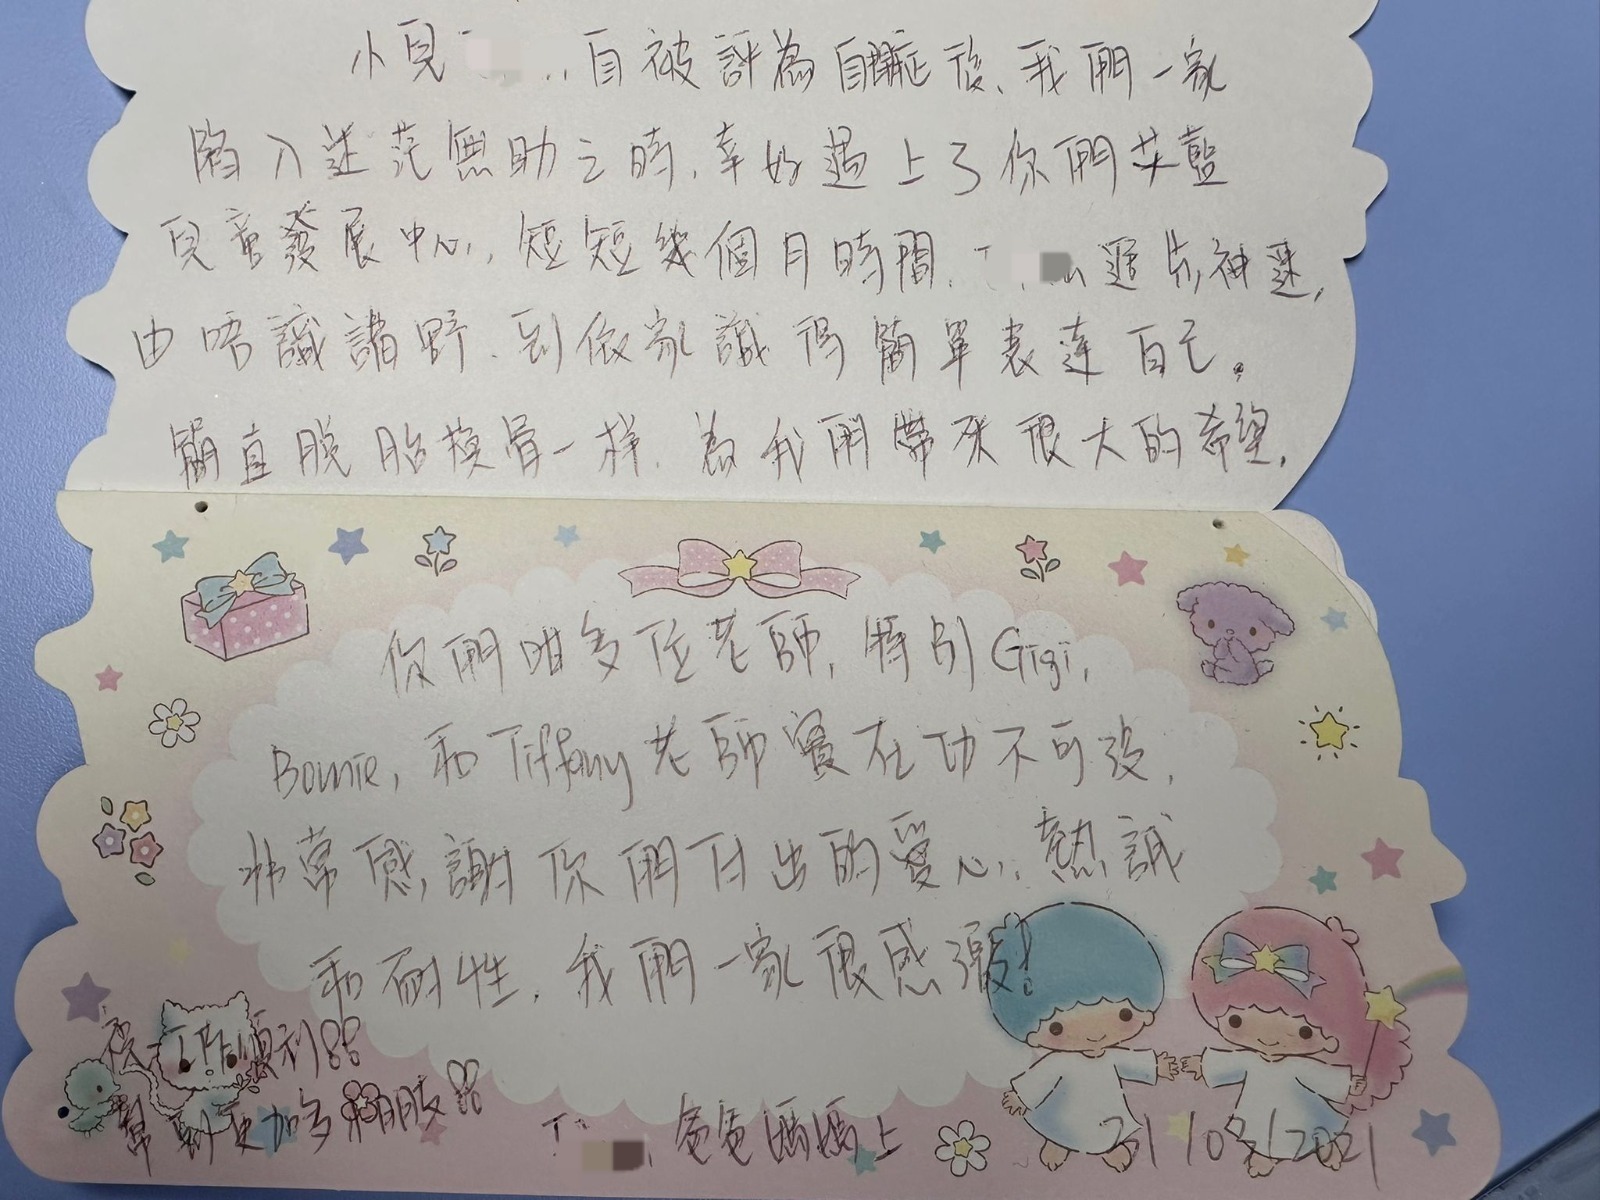 小兒 自被評為自閉症後、我們一家
陷入迷茫無助之時，幸好遇上了你們艾藍
兒童發展中心，短短幾個月時間， 進步神速，
由唔識講野、到依家識得簡單表達自己。
簡直脫胎換骨一樣，為我們帶來很大的希望，
你們咁多位老師，特別Gigi，
Bonnie，和Tiffany老師實在功不可沒，
非常感謝你們付出的愛心、熱誠
和耐性，我們一家很感激！
祝工作順利
幫到更加多小朋友
爸爸媽媽上